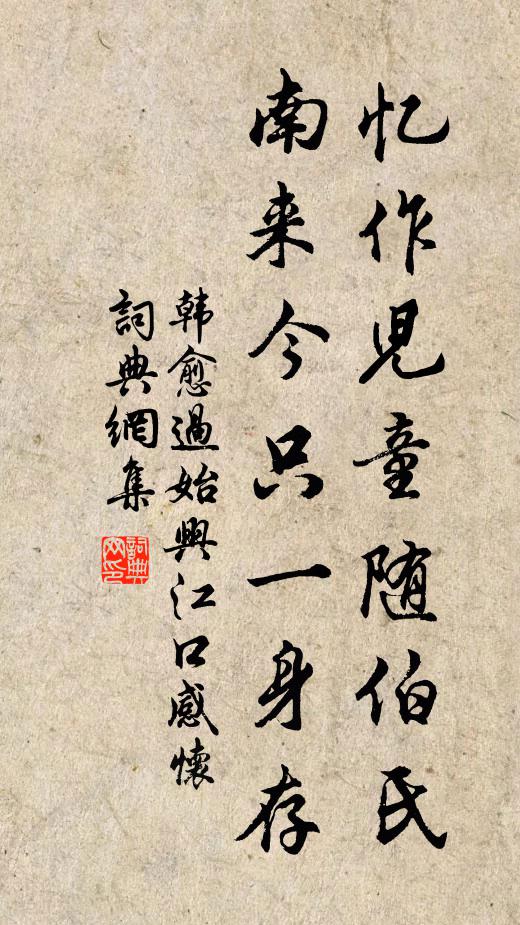 忆作児童随伯氏
南来今只一身存
韩愈過始興江口感懷
詞典網集
詞典网印